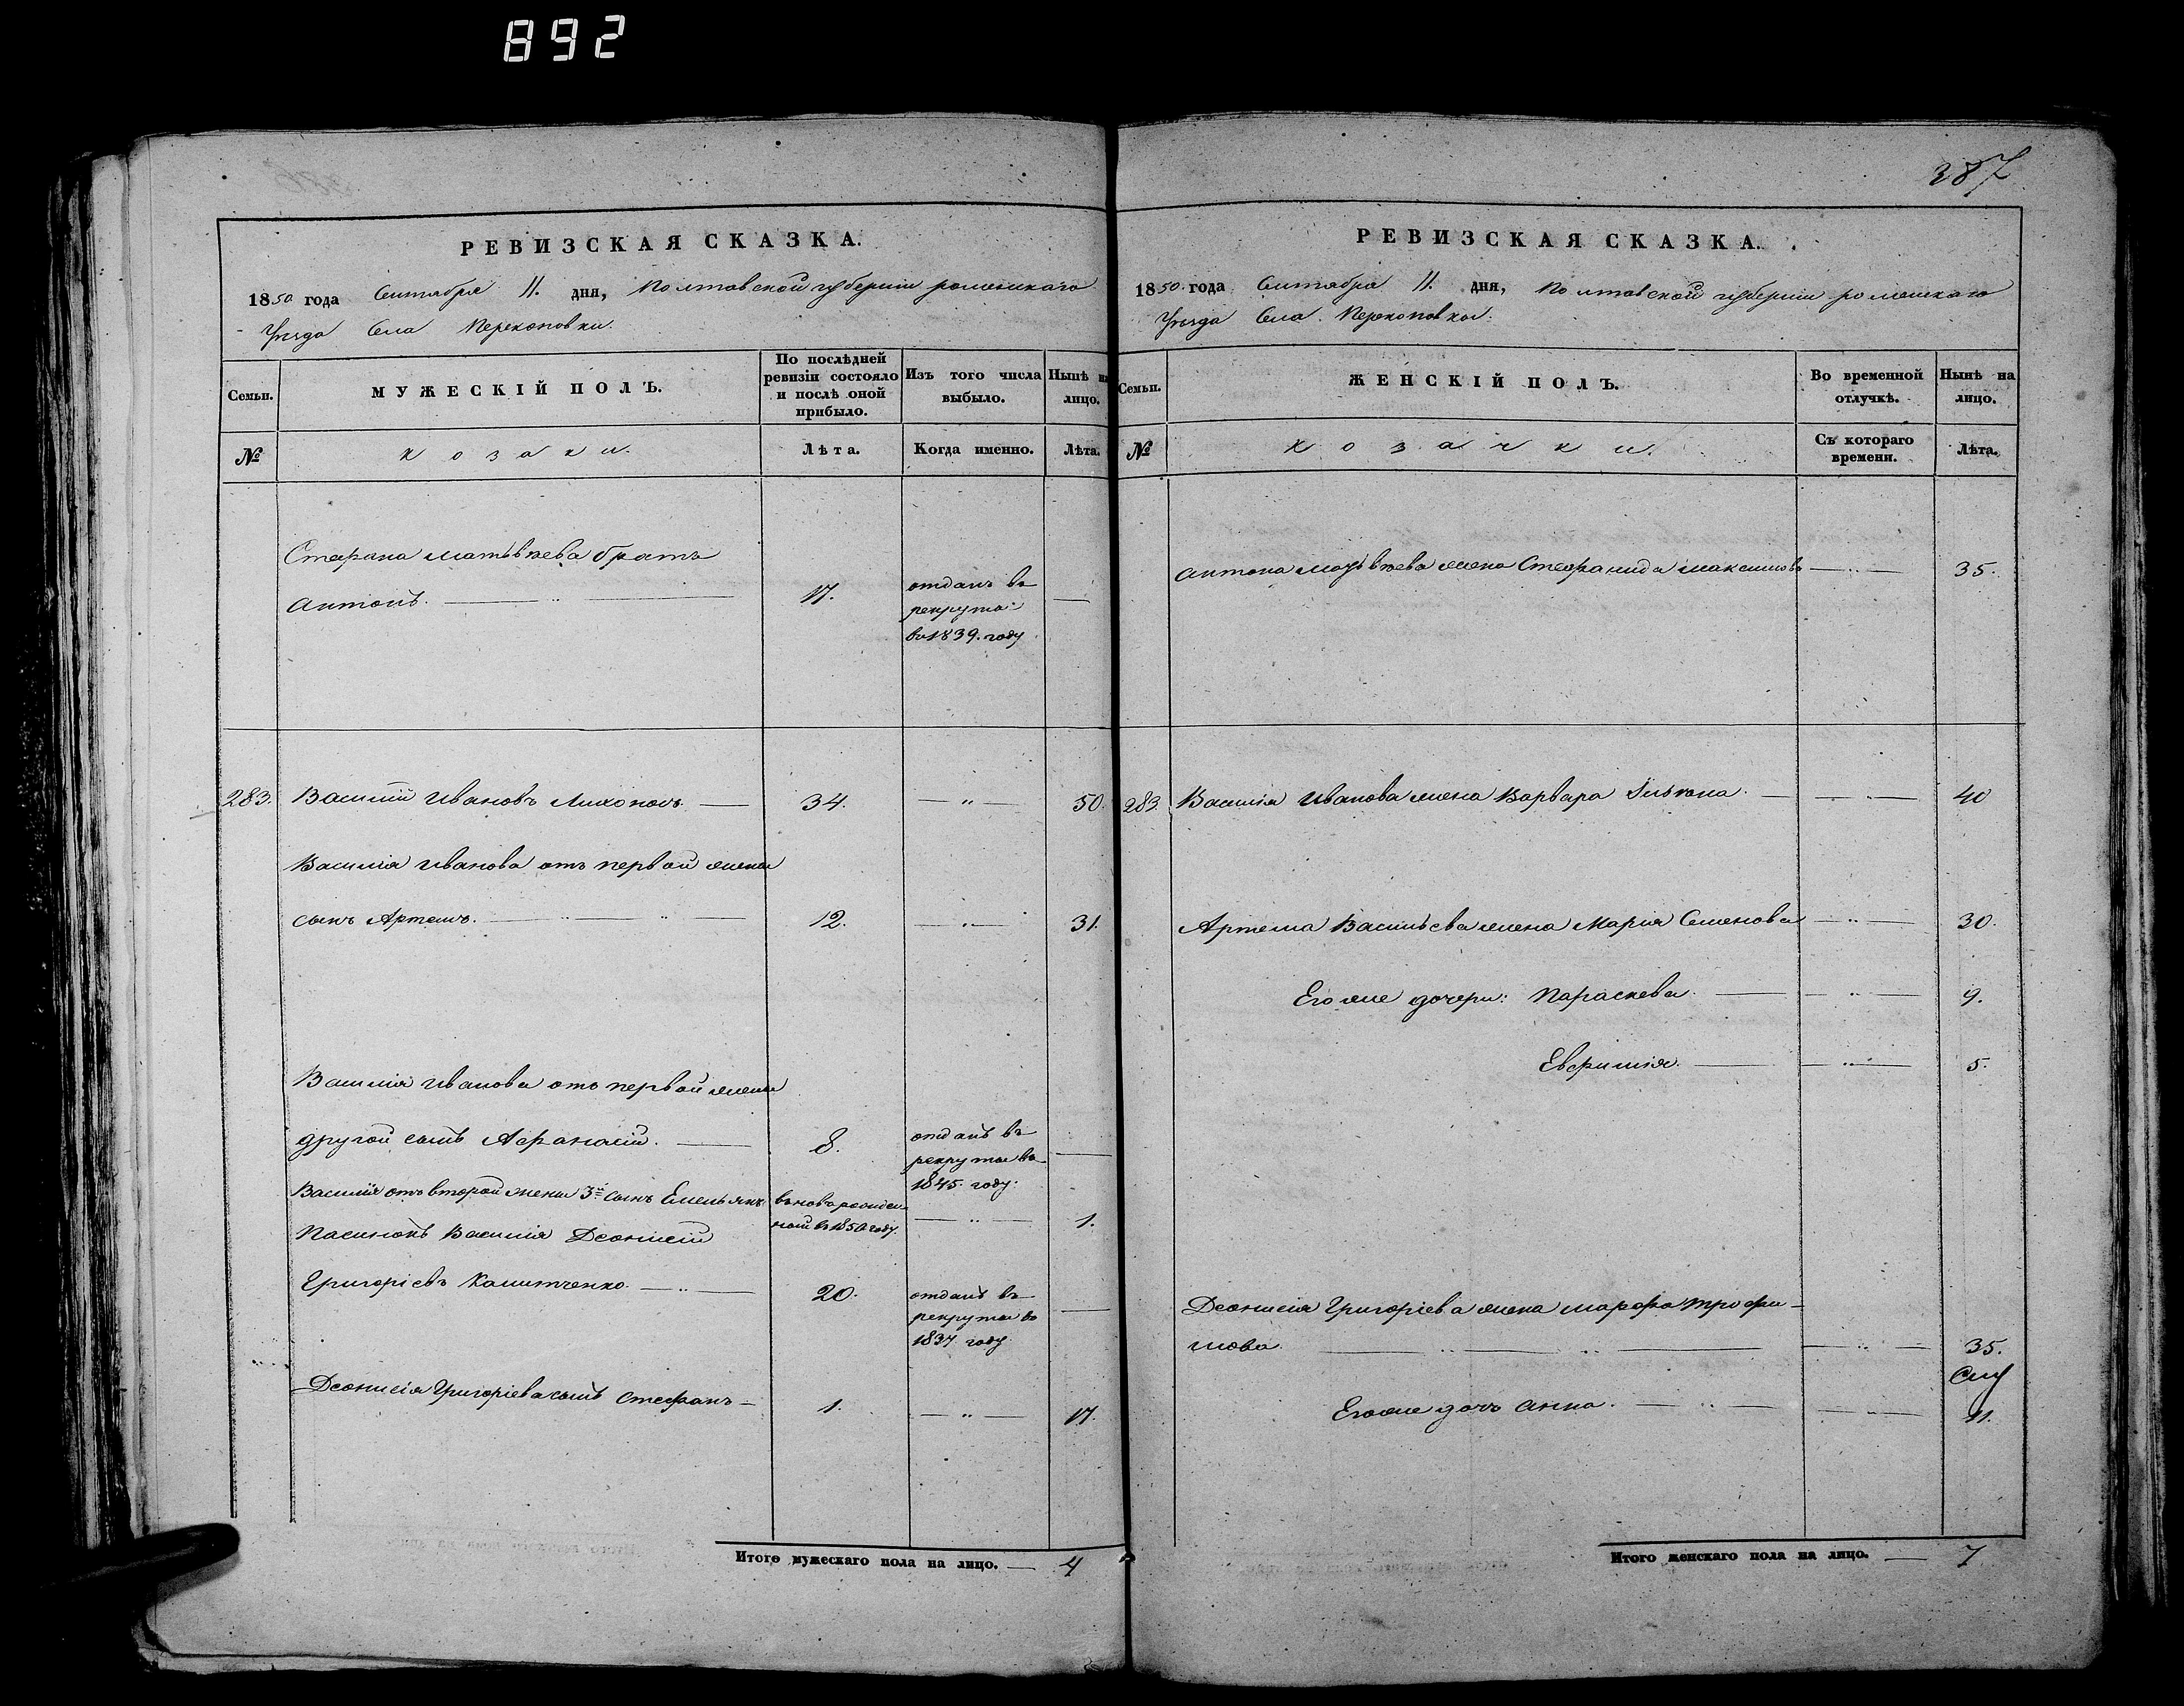 892
387
РЕВИЗСКАЯ СКАЗКА.
1850 года Сентября 11. дня, Полтавской губернии роменского
Уезда Села Перекоповки.
Семьи.
МУЖЕСКІЙ ПОЛЪ.
По послѣдней ревизіи состояло и послѣ оной прибыло.
Изъ того числа выбыло.
Нынѣ на лицо.
№
козаки.
Лѣта.
Когда именно.
Лѣта.
Стефана Матвѣева братъ
Антонъ. 17. отданъ въ
рекруты
въ 1839. году
283. Василій Ивановъ Лихопой 34. 50.
Василія Иванова отъ первой жены
сынъ Артемъ. 12. 31.
Василія Иванова отъ первой жены
другой сынъ Афанасій. 8. отданъ въ
рекруты въ
1845. году.
Василія отъ второй жены 3й сынъ Емельянъ 1.
Пасинокъ Василія Деонисій
Григоріевъ 20. отданъ въ
рекруты въ
1837. году.
Деонисія Григоріева сынъ Стефанъ 1. 17.
Итого мужескаго пола на лицо. 4
РЕВИЗСКАЯ СКАЗКА.
1850. года Сентября 11. дня, Полтавской губернии роменского
Уезда Села Перекоповки.
Семьи.
ЖЕНСКІЙ ПОЛЪ.
Во временной отлучкѣ.
Нынѣ на лицо.
№
козачки.
Съ котораго времени.
Лѣта.
Антона Матвѣева жена Стефанида Максимова 35.
283. Василія Иванова жена Варвара 40
Артема Васильева жена Мария Семенова 30.
Его же дочери: Параскева. 9.
Евфимія. 5.
Деонисія Григоріева жена Марфа Трофи-
мова. 35.
Его же дочь Анна. 11.
Итого женскаго пола на лицо. 7